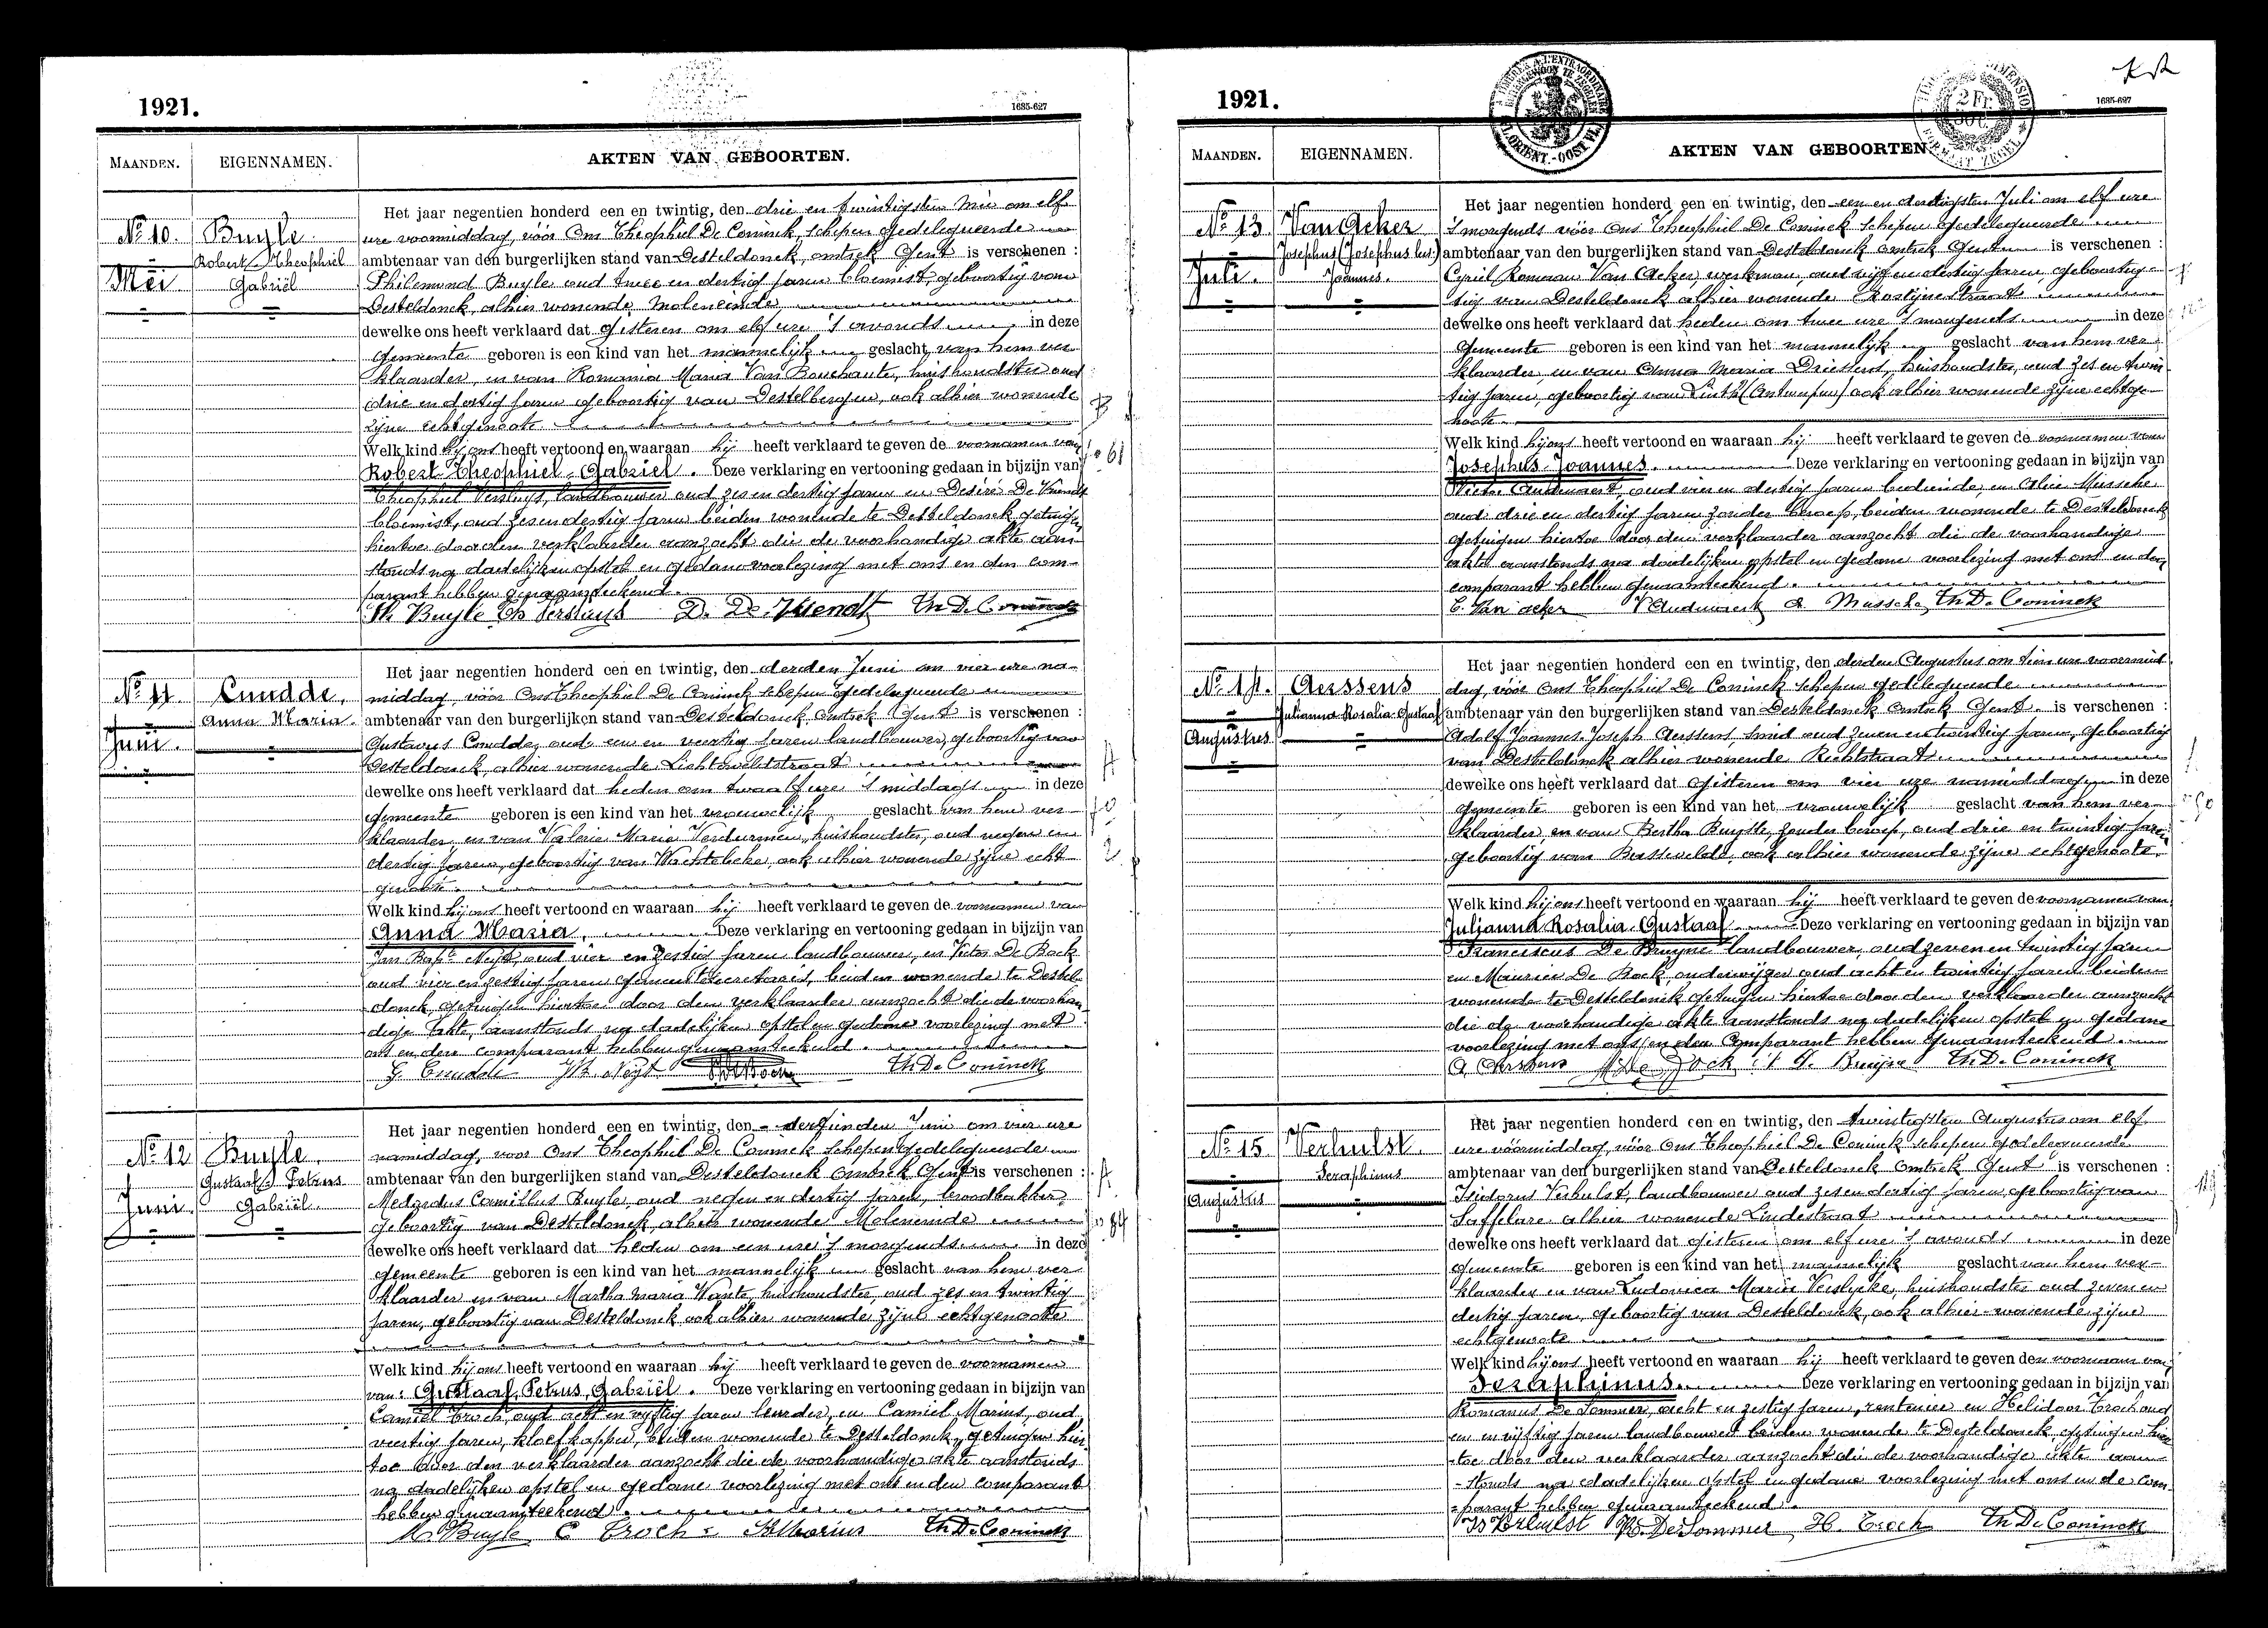 1921.
1685-627
MAANDEN.
EIGENNAMEN.
AKTEN VAN GEBOORTEN.
No 10.
Mei
Buyle
Robert Theophiel
Gabriël
Het jaar negentien honderd een en twintig, den drie en twintigsten Mei om elf
ure voormiddag, vóór Ons Theophiel De Coninck, schepen gedelegueerde
ambtenaar van den burgerlijken stand van Desteldonck, omtrek Gent is verschenen :
Philemond Buyle oud twee en dertig jaren bloemist, geboortig van
Desteldonck, alhier wonende Moleneinde
dewelke ons heeft verklaard dat gisteren om elf ure 's avonds in deze
gemeente geboren is een kind van het mannelijk geslacht, van hem ver-
klaarder, en van Romania Maria Van Bouchaute, huishoudster oud
drie en dertig jaren geboortig van Destelbergen, ook alhier wonende
zijne echtgenoote
Welk kind hij ons heeft vertoond en waaraan hij heeft verklaard te geven de voornamen van
Robert-Theophiel-Gabriel. Deze verklaring en vertooning gedaan in bijzijn van
Theophiel Versluys, landbouwer oud zes en dertig jaren en Desiré De Vriendt
bloemist, oud zes en dertig jaren beiden wonende te Desteldonck getuigen
hiertoe door den verklaarder aanzocht die de voorhandige akte aan-
stonds na dadelijken opstel en gedane voorlezing met ons en den com-
parant hebben genaamteekend.
Ph Buyle Th Versluys D. De Vriendt Th De Coninck
B
61
No 11.
Juni.
Cnudde,
Anna Maria.
Het jaar negentien honderd een en twintig, den derden Juni om vier ure na-
middag, vóór Ons Theophiel De Coninck schepen gedelegueerde
ambtenaar van den burgerlijken stand van Desteldonck, omtrek Gent is verschenen :
Gustavus Cnudde, oud een en veertig jaren landbouwer, geboortig van
Desteldonck, alhier wonende Lichtelveldstraat
dewelke ons heeft verklaard dat heden om twaalf ure 's middags in deze
gemeente geboren is een kind van het vrouwelijk geslacht van hem ver-
klaarder, en van Valerie Maria Verdurmen, huishoudster, oud negen en
dertig jaren, geboortig van Wachtebeke, ook alhier wonende zijne echt
genoote.
Welk kind hij ons heeft vertoond en waaraan hij heeft verklaard te geven de voornamen van
Anna Maria. Deze verklaring en vertooning gedaan in bijzijn van
Jan Bapt. Neyt, oud vier en zestig jaren landbouwer, en Victor De Bock
oud vier en zestig jaren gemeentesecretaris, beiden wonende te Destel-
donck, getuigen hiertoe door den verklaarder aanzocht die de voorhan-
dige akte, aanstonds na dadelijken opstel en gedane voorlezing met
ons en den comparant hebben genaamteekend.
G. Cnudde Th De Coninck
A
No 12
Juni.
Buyle,
Gustaaf Petrus
Gabriël.
Het jaar negentien honderd een en twintig, den dertienden Juni om vier ure
namiddag, voor Ons Theophiel De Coninck schepen gedelegueerde
ambtenaar van den burgerlijken stand van Desteldonck omtrek Gent is verschenen :
Medardus Camillus Buyle, oud negen en dertig jaren, broodbakker
geboortig van Desteldonck, alhier wonende Moleneinde
dewelke ons heeft verklaard dat heden om een ure 's morgends in deze
gemeente geboren is een kind van het mannelijk geslacht van hem ver-
klaarder en van Martha Maria Wante, huishoudster, oud zes en twintig
jaren, geboortig van Desteldonck ook alhier wonende zijne echtgenoote
Welk kind hij ons heeft vertoond en waaraan hij heeft verklaard te geven de voornamen
van: Gustaaf, Petrus, Gabriël. Deze verklaring en vertooning gedaan in bijzijn van
Camiel Troch, oud acht en vijftig jaren leurder, en Camiel Marius, oud
veertig jaren, kloefkapper, beiden wonende te Desteldonck, getuigen hier
toe door den verklaarder aanzocht die de voorhandige akte aanstonds
na dadelijken opstel en gedane voorlezing met ons en den comparant
hebben genaamteekend.
M. Buyle C Troch Marius Th De Coninck
A
84
1921.
1685-627
MAANDEN.
EIGENNAMEN.
AKTEN VAN GEBOORTEN
No 13
Juli.
Van Acker
Josephus (Josephus
Joannes.
Het jaar negentien honderd een en twintig, den een en dertigsten Juli om elf ure
's morgends vóór Ons Theophiel De Coninck schepen gedelegueerde
ambtenaar van den burgerlijken stand van Desteldonck omtrek Gent is verschenen :
Cyriel Romaan Van Acker, werkman, oud vijf en dertig jaren, geboortig-
tig van Desteldonck alhier wonende Rostijnestraat
dewelke ons heeft verklaard dat heden om twee ure 's morgends in deze
gemeente geboren is een kind van het mannelijk geslacht van hem ver-
klaarder, en van Anna Maria Driessens, huishoudster, oud zes en twin-
tig jaren, geboortig van Linth (Antwerpen) ook alhier wonende zijne echtge-
noote.
Welk kind hij ons heeft vertoond en waaraan hij heeft verklaard te geven de voornamen van
Josephus-Joannes. Deze verklaring en vertooning gedaan in bijzijn van
Victor Audenaert, oud vier en dertig jaren bediende, en Alice Mussche
oud drie en dertig jaren zonder beroep, beiden wonende te Desteldonck
getuigen hiertoe door den verklaarder aanzocht die de voorhandige
akte aanstonds na dadelijken opstel en gedane voorlezing met ons en den
comparant hebben genaamteekend.
C. Van acker V Audenaert A. Mussche Th De Coninck
No 14.
Augustus
Aerssens
Julianna-Rosalia-Gustaaf
Het jaar negentien honderd een en twintig, den derden Augustus om tien ure voormid
dag, vóór Ons Theophiel De Coninck schepen gedelegueerde
ambtenaar van den burgerlijken stand van Desteldonck omtrek Gent. is verschenen :
Adolf Joannes Joseph Aerssens, smid oud zeven en twintig jaren, geboortig
van Desteldonck alhier wonende Rechtstraat
dewelke ons heeft verklaard dat gisteren om vier ure namiddag in deze
gemeente geboren is een kind van het vrouwelijk geslacht van hem ver-
klaarder, en van Bertha Buysse, zonder beroep, oud drie en twintig jaren
geboortig van Bassevelde, ook alhier wonende zijne echtgenoote.
Welk kind hij ons heeft vertoond en waaraan hij heeft verklaard te geven de voornamen van
Julianna Rosalia-Gustaaf Deze verklaring en vertooning gedaan in bijzijn van
Franciscus De Bruyne landbouwer, oud zeven en twintig jaren
en Maurice De Bock, onderwijzer oud acht en twintig jaren beiden
wonende te Desteldonck getuigen hiertoe door den verklaarder aanzocht
die de voorhandige akte aanstonds na dadelijken opstel en gedane
voorlezing met ons en den Comparant hebben genaamteekend.
A. Aerssens M De Bock Bruyne Th De Coninck
No 15
Augustus
Verhulst.
Seraphinus
Het jaar negentien honderd een en twintig, den twintigsten Augustus om elf
ure vóórmiddag, vóór Ons Theophiel De Coninck schepen gedelegueerde
ambtenaar van den burgerlijken stand van Desteldonck omtrek Gent is verschenen :
Isidorus Verhulst, landbouwer oud zes en dertig jaren, geboortig van
Saffelare alhier wonende Lindestraat
dewelke ons heeft verklaard dat gisteren om elf ure 's avonds in deze
gemeente geboren is een kind van het mannelijk geslacht van hem ver-
klaarder en van Ludovica Maria Verslycke, huishoudster oud zeven en
dertig jaren, geboortig van Desteldonck, ook alhier wonende zijne
echtgenoote
Welk kind hij ons heeft vertoond en waaraan hij heeft verklaard te geven den voornaam van
Seraphinus. Deze verklaring en vertooning gedaan in bijzijn van
Romanus De Sommer, acht en zestig jaren, rentenier en Helidoor Troch oud
een en vijftig jaren landbouwer beiden wonende te Desteldonck, getuigen hier
toe door den verklaarder aanzocht die de voorhandige akte aan-
-stonds na dadelijken opstel en gedane voorlezing met ons en de com-
=parant hebben genaamteekend.
Is Verhulst R. De Sommer H. Troch Th De Coninck